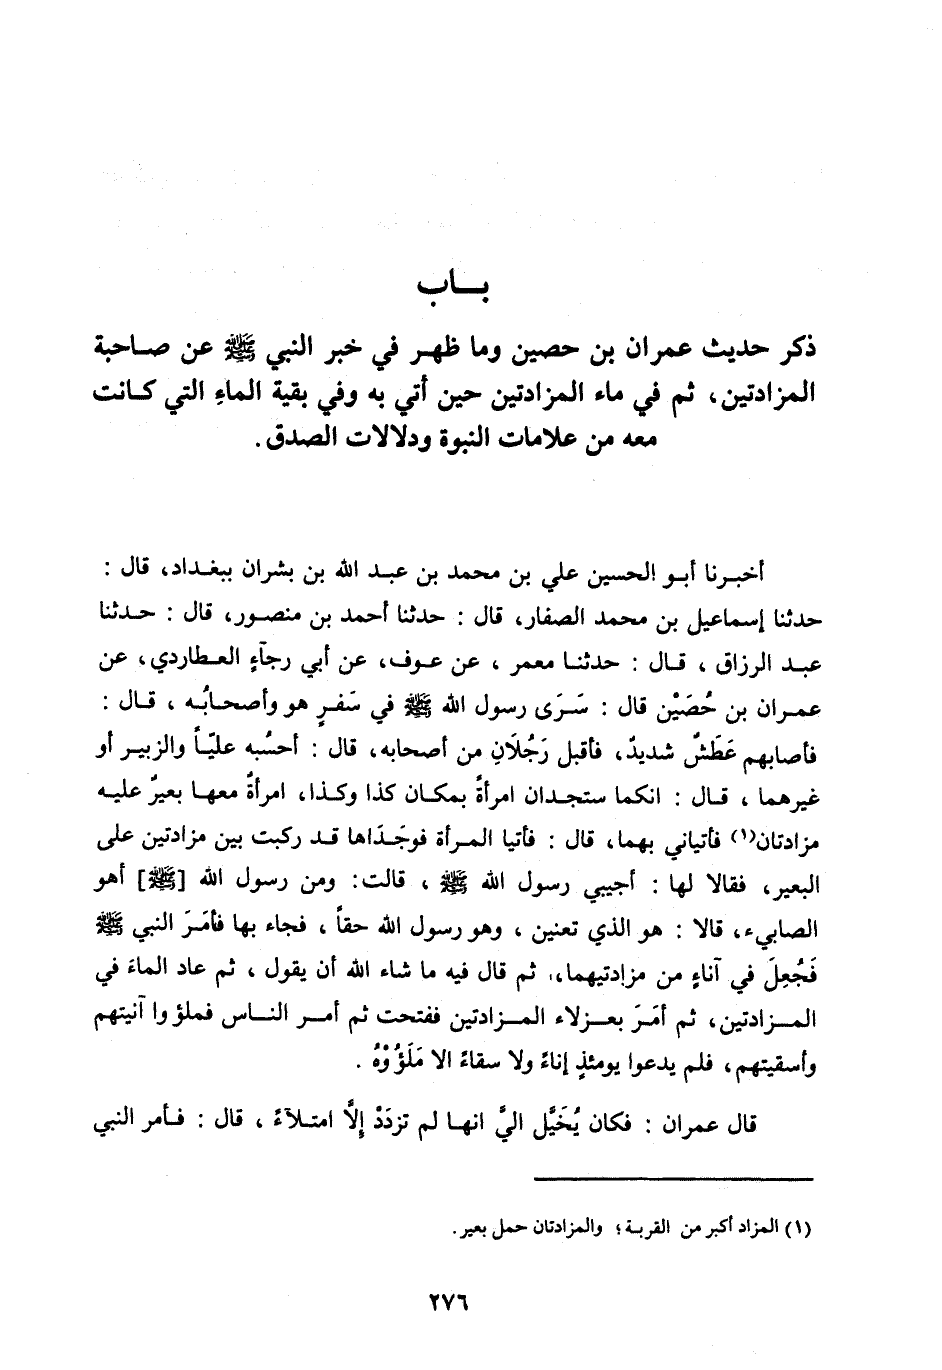 بــاب
ذكر حديث عمران بن حصين وما ظهـر في خبر النبي ﷺ عن صاحبة
المزادتين، ثم في ماء المزادتين حين أتي به وفي بقية الماء التي كانت
معه من علامات النبوة ودلالات الصدق.
أخبرنا أبو الحسين علي بن محمد بن عبد الله بن بشران ببغداد، قال :
حدثنا إسماعيل بن محمد الصفار، قال : حدثنا أحمد بن منصور، قال : حدثنا
عبد الرزاق ، قال : حدثنا معمر ، عن عوف، عن أبي رجآءٍ العطاردي، عن
عمران بن حُصَيْن قال : سَرَى رسول الله ﷺ في سَفرٍ هو وأصحابُه ، قال :
فأصابهم عَطَشٌ شديدٌ، فأقبل رَجُلَانِ من أصحابه، قال : أحسُبه عليّاً والزبير أو
غيرهما ، قال : انكما ستجدان امرأةً بمكان كذا وكذا، امرأةٌ معها بعيرٌ عليه
مزادتان(١) فأتياني بهما، قال : فأتيا المرأة فوجَدَاها قد ركبت بين مزادتين على
البعير، فقالا لها : أجيبي رسول الله ﷺ ، قالت: ومن رسول الله [ﷺ] أهو
الصابيء، قالا : هو الذي تعنين ، وهو رسول الله حقاً ، فجاء بها فأمَرَ النبي ﷺ
فَجُعِلَ في آناءٍ من مزادتيهما،، ثم قال فيه ما شاء الله أن يقول ، ثم عاد الماءَ في
المزادتين، ثم أمَرَ بعزلاء المزادتين ففتحت ثم أمر الناس فملؤوا آنيتهم
وأسقيتهم، فلم يدعوا يومئذٍ إناءً ولا سقاءً الا مَلَؤُوْهُ .
قال عمران : فكان يُخَيَّل اليَّ انها لم تزدَدْ إِلَّا امتلآءً ، قال : فأمر النبي
(١) المزاد أكبر من القربة؛ والمزادتان حمل بعير.
٢٧٦